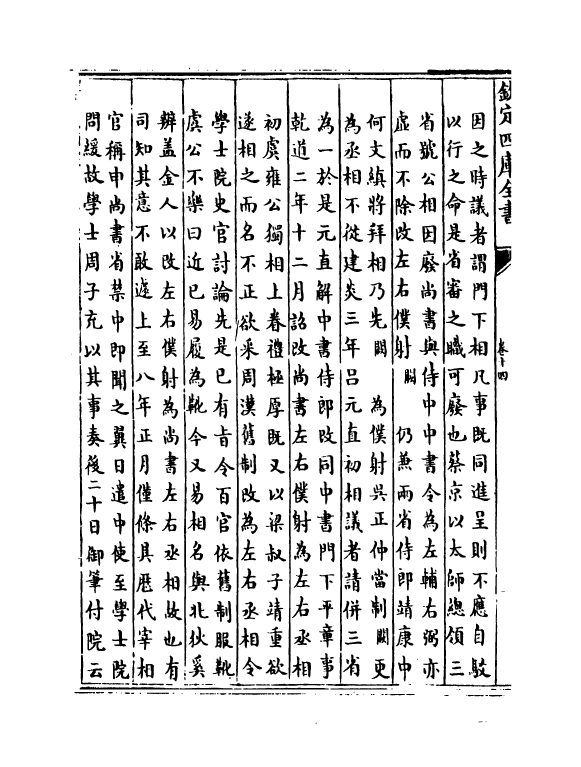 欽定四庫全書
卷十四
因之時議者謂門下相凡事既同進呈則不應自駮
以行之命是省審之職可廢也蔡京以太師總領三
省號公相因廢尚書與侍中中書令為左輔右弼亦
虛而不除改左右僕射闕 仍兼兩省侍郎靖康中
何文縝將拜相乃先闕 為僕射吳正仲當制闕更
為丞相不從建炎三年呂元直初相議者請併三省
為一於是元直解中書侍郎改同中書門下平章事
乾道二年十二月詔改尚書左右僕射為左右丞相
初虞雍公獨相上眷禮極厚既又以梁叔子靖重欲
遂相之而名不正欲采周漢舊制改為左右丞相令
學士院史官討論先是已有旨令百官依舊制服靴
虞公不樂曰近已易履為靴今又易相名與北狄奚
辨盖金人以改左右僕射為尚書左右丞相故也有
司知其意不敢遽上至八年正月僅條具歴代宰相
官稱申尚書省禁中即聞之翼日遣中使至學士院
問緩故學士周子充以其事奏後二十日御筆付院云